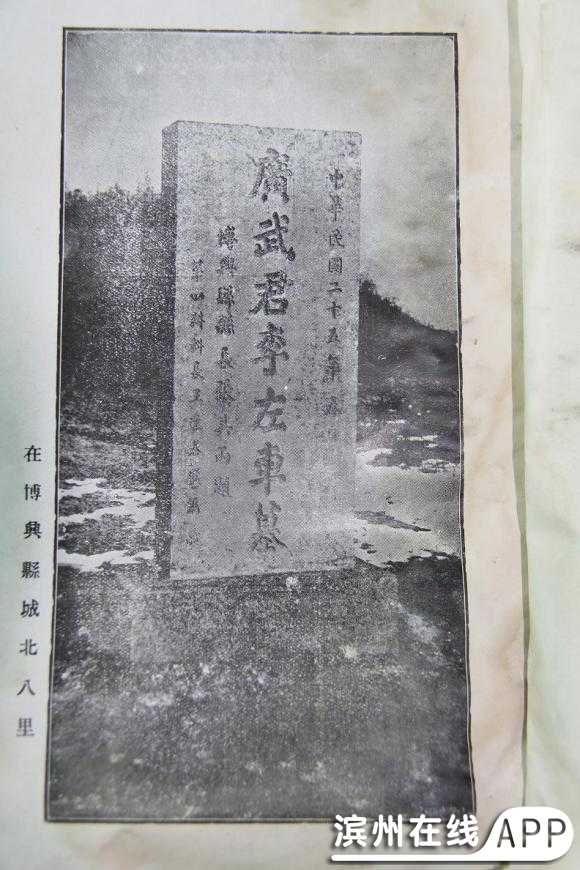 中華民國二十五年
廣武君李左車墓
博興縣縣長張其丙題
第四科科長王
在博興縣城北八里
滨州在线 APP